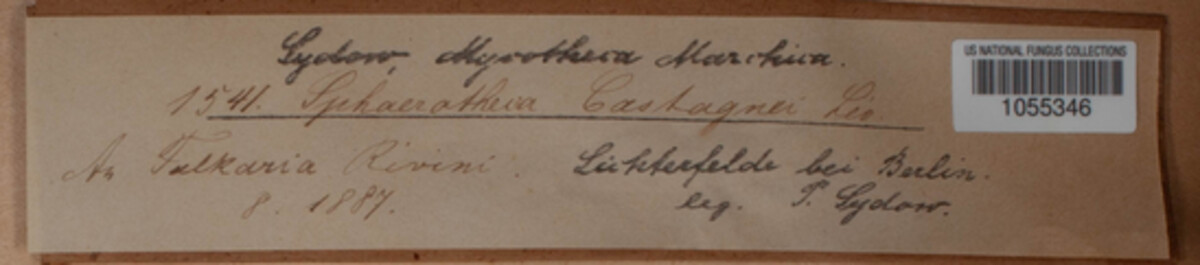 Sydow, Mycotheca Marchica.
US NATIONAL FUNGUS COLLECTIONS
1055346
1541. Sphaerotheca Castagnei Lév.
An Falkaria Rivini.
8. 1887.
Lichterfelde bei Berlin.
leg. P. Sydow.